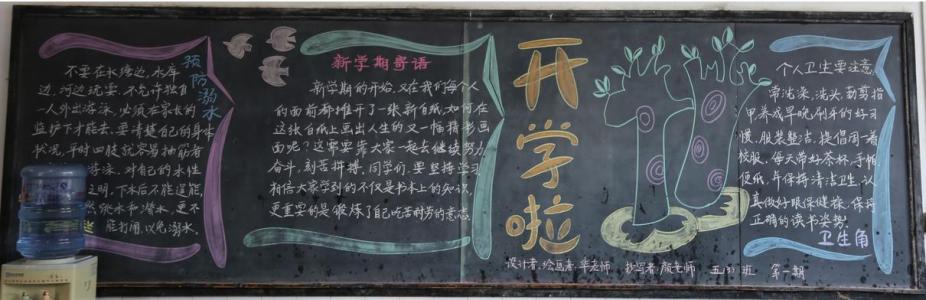 预防溺水
不要在水塘边、水库
边、河边玩耍、不允许独自
一人外出游泳,必须在家长的
监护下才能去。要清楚自己的身体
状况,平时四肢就容易抽筋者
游泳。对自己的水性
之明,下水后不能逞能,
跳水和潜水,更不
能打闹,以免溺水。
新学期寄语
新学期的开始,又在我们每个人
的面前都摊开了一张新白纸,如何在
这张白纸上画出人生的又一幅精彩画
面呢?这需要靠大家一起去继续努力
奋斗,刻苦拼搏,同学们,要坚持学习
相信大家学到的不仅是书本上的知识,
更重要的是锻炼了自己吃苦耐劳的意志。
开学啦
个人卫生要注意,
常洗澡、洗头,勤剪指
甲养成早晚刷牙的好习
惯,服装整洁,提倡周一着
校服,每天带好茶杯,手帕,
便纸,并保持清洁卫生,认
真做好眼保健操,保持
正确的读书姿势。
卫生角
设计者,绘画者:华老师 抄写者:颜老师 五(3)班 第一期